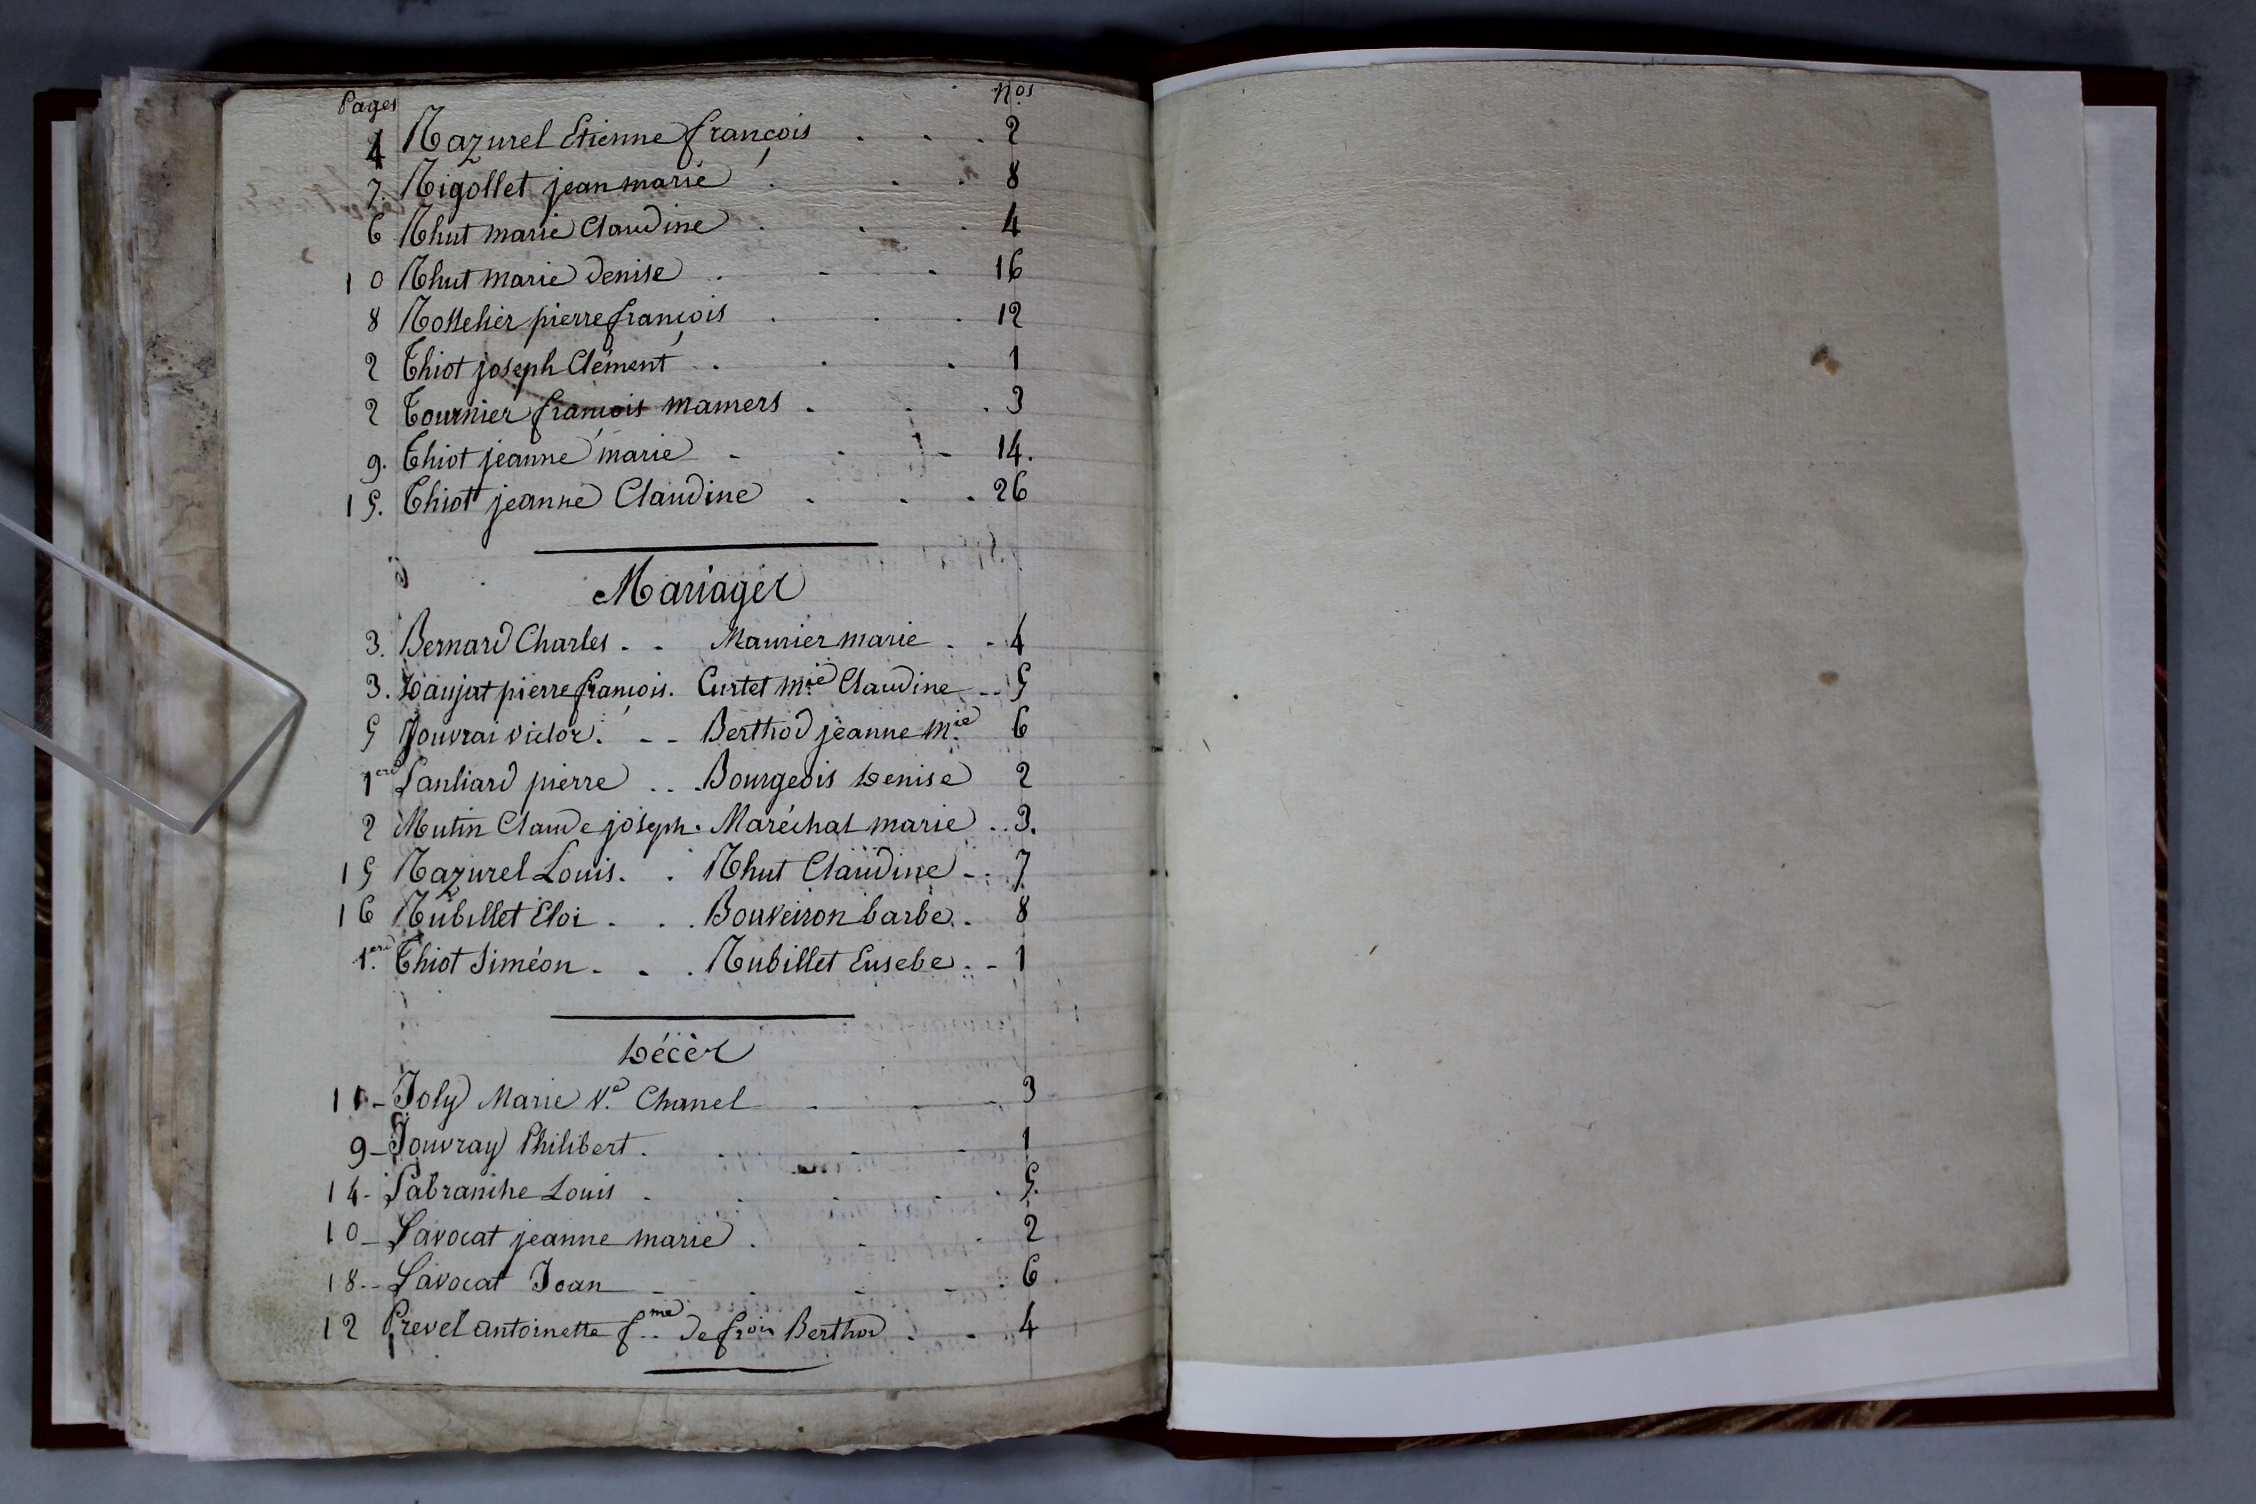 Pages Nos
4 Razurel Etienne françois . . . 2
7. Rigollet jean marie . . . 8
6 Rhut marie Claudine . . . 4
10 Rhut marie denise . - . 16
8 Rosselier pierre françois . . . 12
2 Thiot joseph Clément . . . 1
2 Tournier françois mamers . . . 3
9. Thiot jeanne marie - . - 14.
15. Thiot jeanne Claudine . . . 26
Mariages
3. Bernard Charles . . Maurier marie . . 4
3. Daujat pierre françois. Curtet mie Claudine .. 5
5 Jouvrai victor. - - Berthod jeanne mie 6
1ere Lanliard pierre .. . Bourgeois Denise 2
2 Mutin Claude joseph. Maréchal marie .. 3.
15 Razurel Louis. . Rhut Claudine - . 7
16 Rubillet Eloi . . . Bouveiron barbe . 8
1ere Thiot Siméon - . . Rubillet Eusebe . - 1
Décès
11 - Joly Marie Ve Chanel . . . 3
9 - Jouvray Philibert . . . . 1
14 - Labranche Louis . . . . 5.
10 - Lavocat jeanne marie . . . 2
18 - Lavocat Jean - . . . . 6
12 Prevel antoinette fme de frois Berthod . . 4